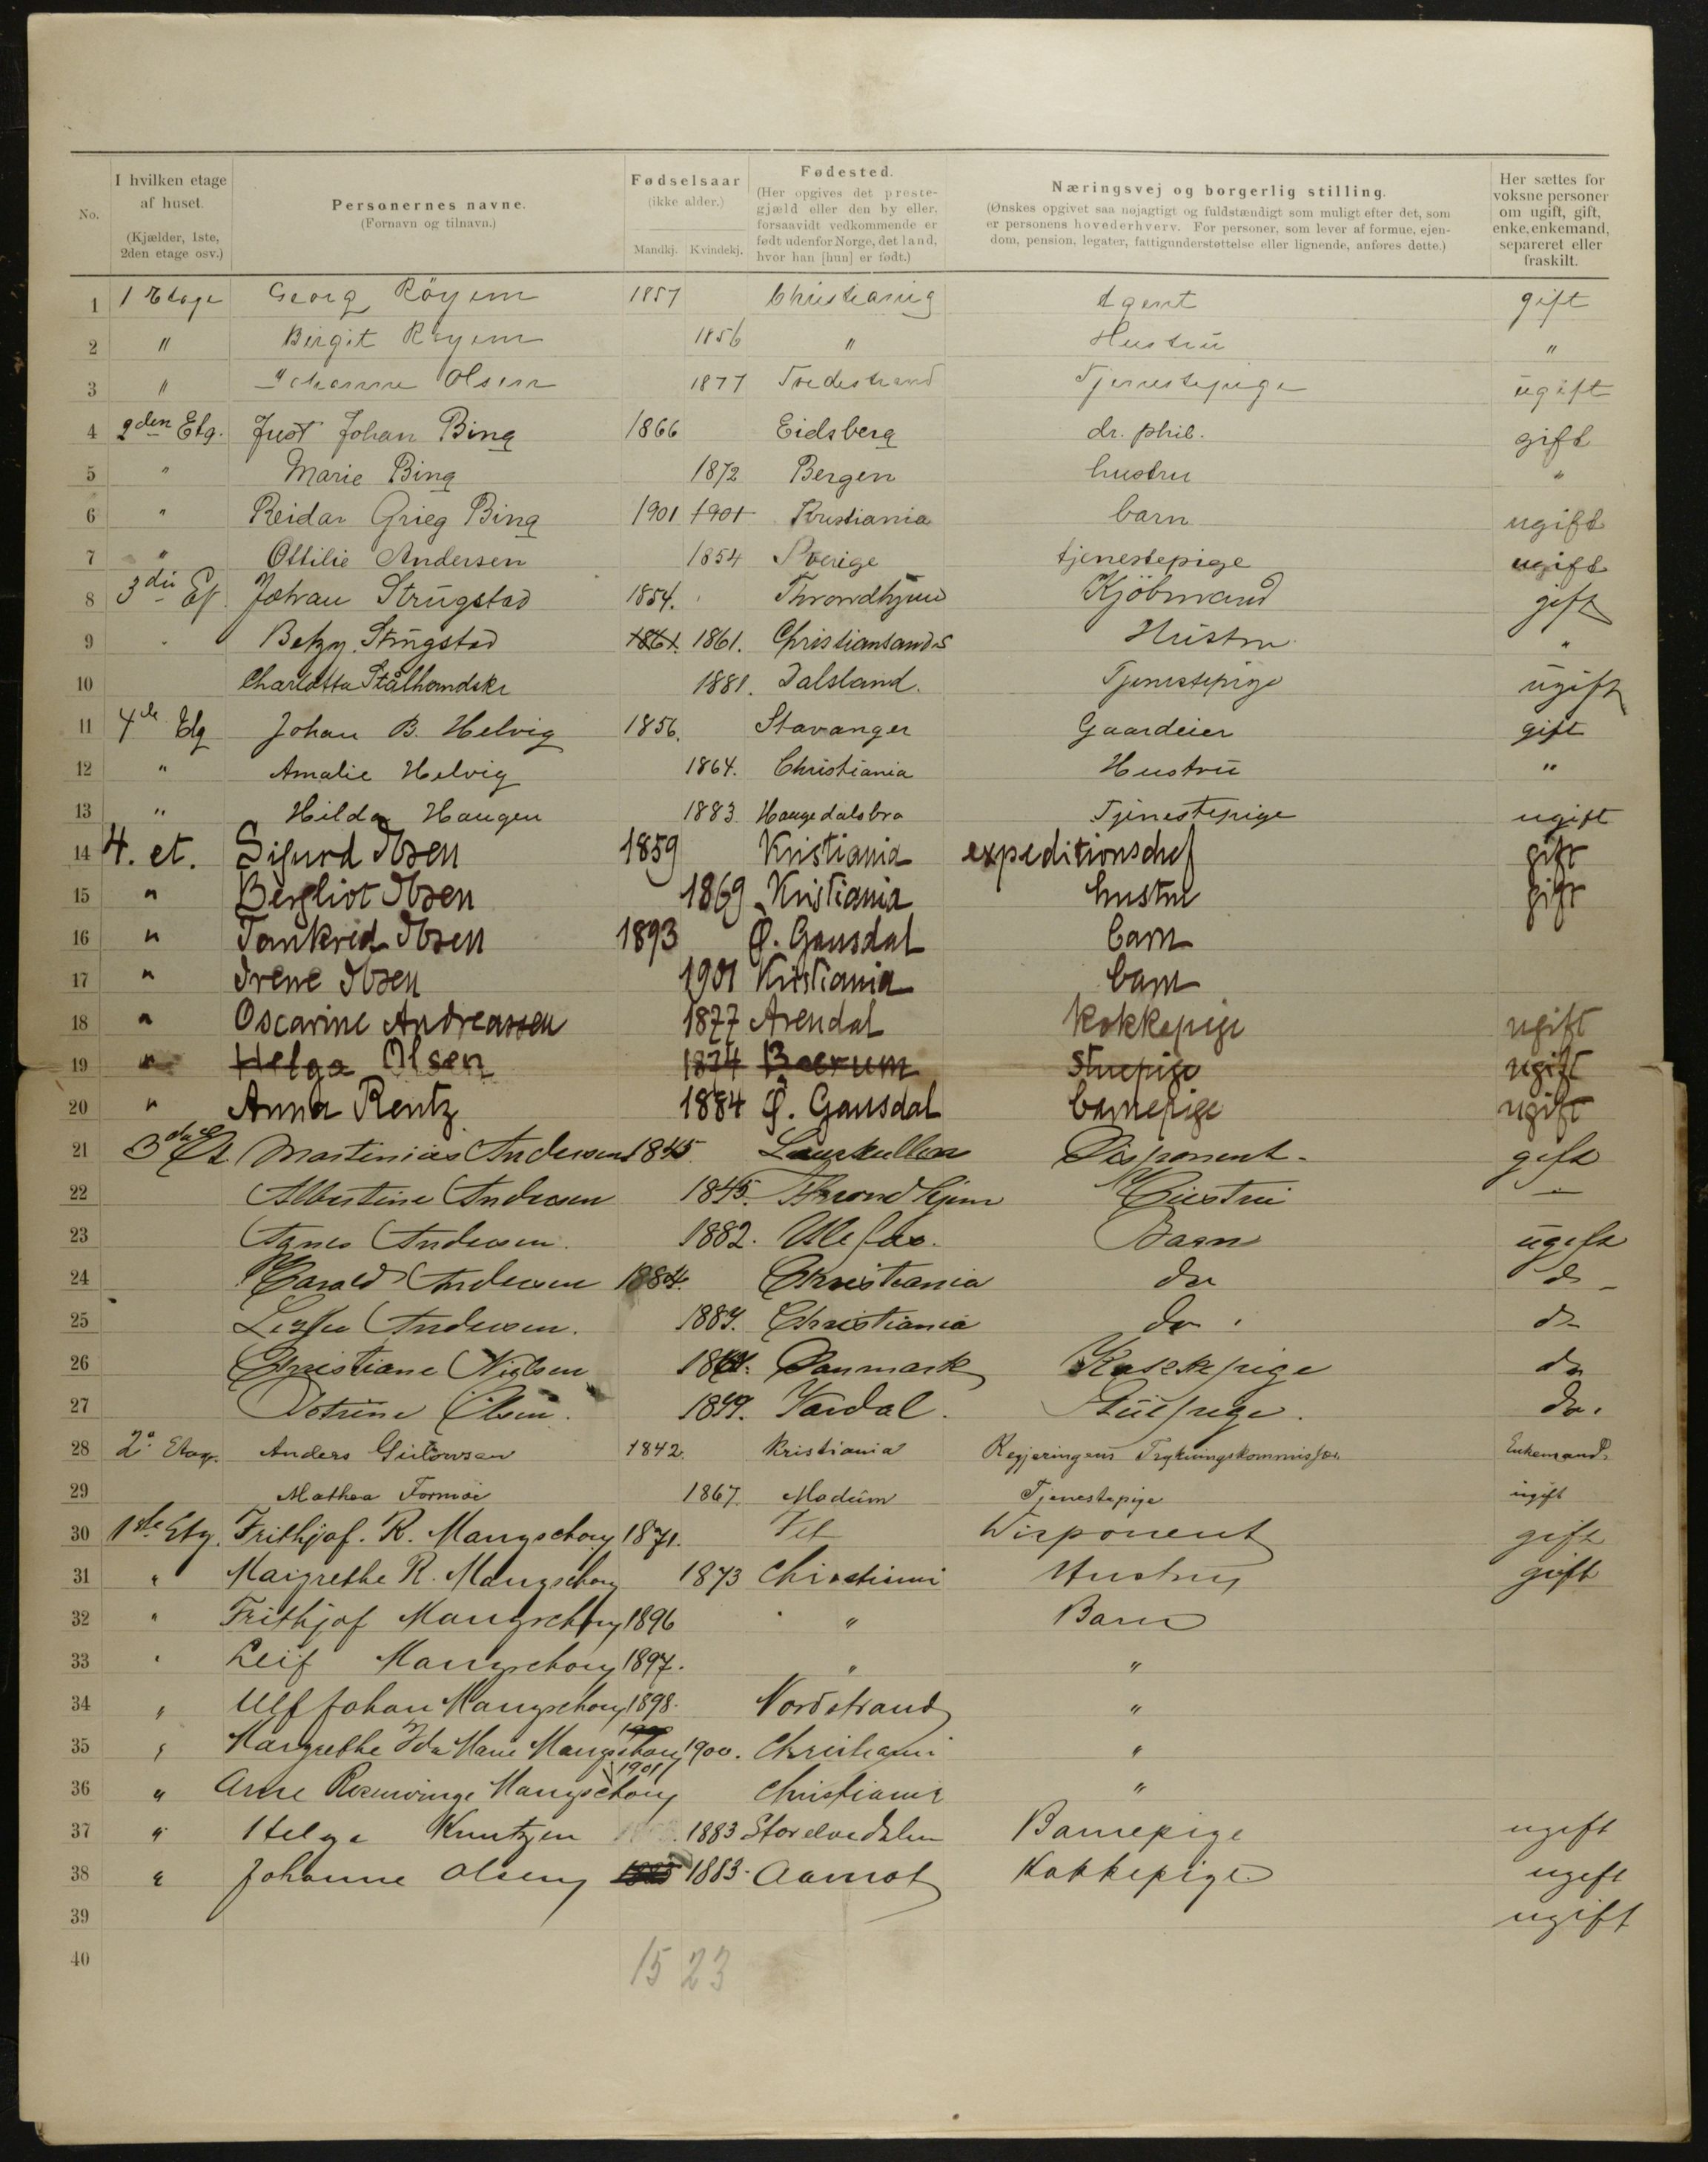 No.
I hvilken etage af huset. (Kjælder, 1ste, 2den etage osv.)
Personernes navne. (Fornavn og tilnavn.)
Fødselsaar (ikke alder.) Mandkj. Kvindekj.
Fødested. (Her opgives det prestegjæld eller den by eller, forsaavidt vedkommende er født udenfor Norge, det land, hvor han [hun] er født.)
Næringsvej og borgerlig stilling. (Ønskes opgivet saa nøjagtigt og fuldstændigt som muligt efter det, som er personens hovederhverv. For personer, som lever af formue, ejendom, pension, legater, fattigunderstøttelse eller lignende, anføres dette.)
Her sættes for voksne personer om ugift, gift, enke, enkemand, separeret eller fraskilt.
1 1 Etage Georg Röyem 1857 Christiania Agent gift
2 " Birgit Röyem 1856 " Hustru "
3 " Johanne Olsen 1877 Tvedestrand Tjenestepige ugift
4 2den Etg. Just Johan Bing 1866 Eidsberg dr. phil. gift
5 " Marie Bing 1872 Bergen hustru "
6 " Reidar Grieg Bing 1901 1901 Kristiania barn ugift
7 " Ottilie Andersen 1854 Sverige tjenestepige ugift
8 3die Et. Johan Strugstad 1854. Throndhjem Kjöbmand gift
9 " Betzy Strugstad 1861. 1861. Christiansand S Hustru "
10 Charlotta Stålhandske 1881. Dalsland. Tjenestepige ugift
11 4de Etg Johan B. Helvig 1856. Stavanger Gaardeier gift
12 " Amalie Helvig 1864. Christiania Hustru "
13 " Hilda Haugen 1883 Haugedalsbro Tjenestepige ugift
14 4. et. Sigurd Ibsen 1859 Kristiania expeditionschef gift
15 " Bergliot Ibsen 1869 Kristiania hustru gift
16 " Tankred Ibsen 1893 Ø. Gausdal barn
17 " Irene Ibsen 1901 Kristiania barn
18 " Oscarine Andreassen 1877 Arendal kokkepige ugift
19 " Helga Olsen 1874 Baerum stuepige ugift
20 " Anna Rentz 1884 Ø. Gausdal barnepige ugift
21 3die Et. Martinius Andersen 1845 Laurkullen Disponent. gift
22 Albertine Andersen 1845. Throndhjem Hustru —
23 Agnes Andersen. 1882. Ulefos. Barn ugift
24 Harald Andersen 1884. Christiania do do
25 Andersen. Christiania do. do
26 Christiane Nielsen Danmark Kokkepige do
27 Petrine Olsen. Vardal. Stuepige. do.
28 2n Etage. Anders 1842. Kristiania Regjeringens Trykningskommissær Enkemand.
29 Mathea Formoe 1867. Modum Tjenestepige ugift
30 1ste Etg. Frithjof. R. Mangschou 1871. Disponent gift
31 " Margrethe R. Mangschou 1873 Christiania Hustru gift
32 " Frithjof Mangschou 1896 " Barn
33 " Leif Mangschou 1897. " "
34 " Ulf Johan Mangschou 1898. Nordstrand "
35 " Margrethe Ida Marie Mangschou 1900 1900. Christiania "
36 " Arne Rosenvinge Mangschou 1901 Christiania "
37 " Helga Knutzen 1883 Storelvedalen Barnepige ugift
38 " Johanne Olsen 1883. Aamot Kokkepige ugift
39 ugift
40
15 23